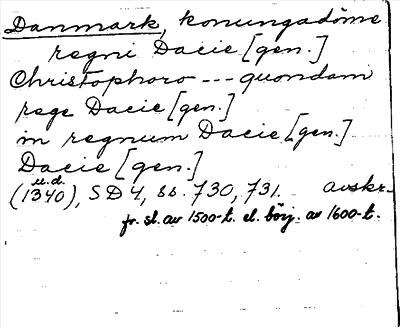 Danmark, konungadöme
regni Dacie [gen.]
Christophoro --- quondam
rege Dacie [gen.]
in regnum Dacie [gen.]
Dacie [gen.]
u.d.
(1340), SD 4, ss. 730, 731. avskr.
fr. sl. av 1500-t. el. börj. av 1600-t.